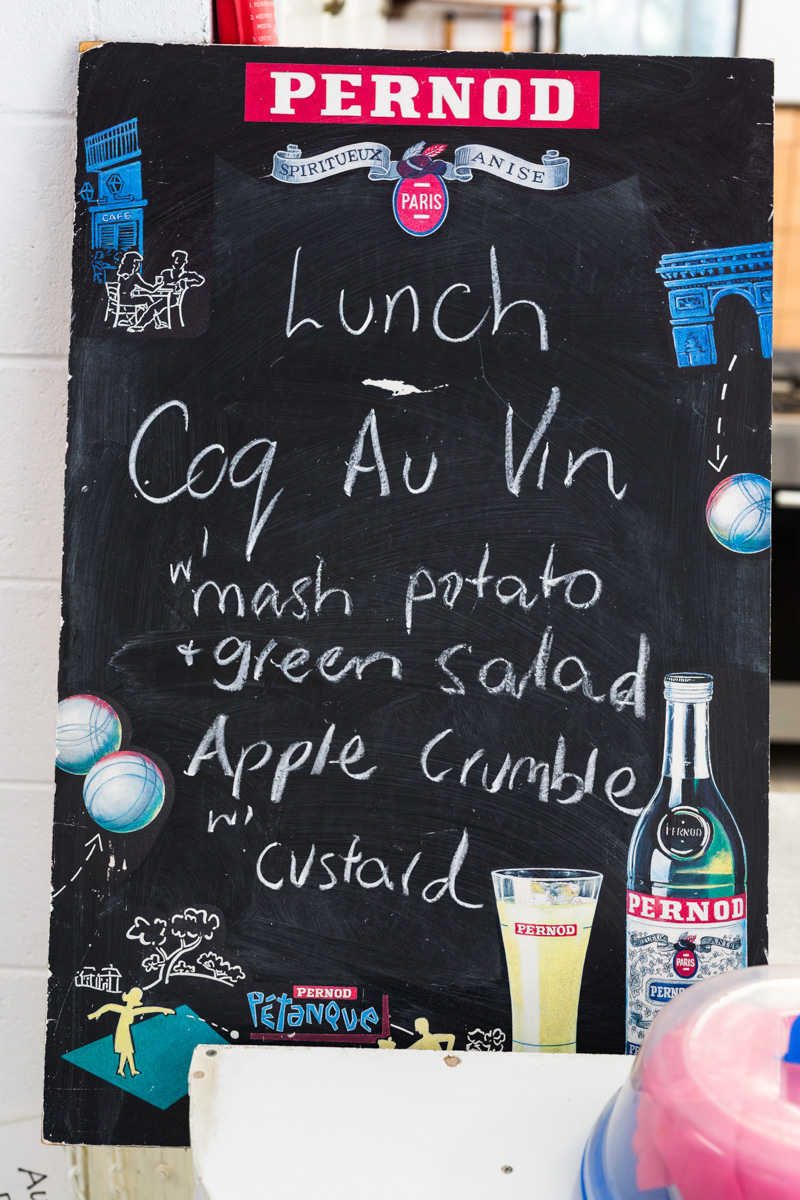 PERNOD
SPIRITUEUX ANISE
PARIS
CAFE
Lunch
Coq Au Vin
w/ mash potato
+ green salad
Apple Crumble
w/
custard
PERNOD
PERNOD
PERNOD
PARIS
PERNOD
PÉTANQUE